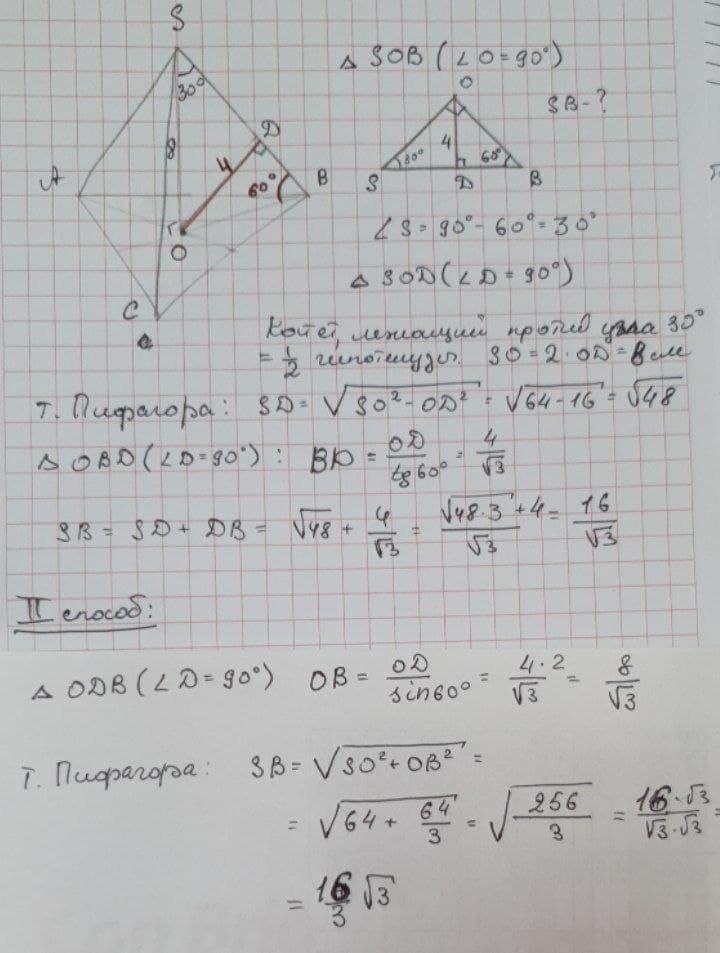 S
30°
8
D
4
A
60°
B
O
C
△ SOB (∠O=90°)
O
SB-?
4
30°
60°
S
D
B
∠S = 90° - 60° = 30°
△ SOD (∠D = 90°)
Катет, лежащий против угла 30°
= 1/2 гипотенузы. SO = 2 · OD = 8 см
т. Пифагора: SD = √(SO² - OD²) = √(64-16) = √48
△ OBD (∠D=90°): BD = OD/tg60° = 4/√3
SB = SD + DB = √48 + 4/√3 = (√(48·3) + 4)/√3 = 16/√3
II способ:
△ ODB (∠D = 90°) OB = OD/sin60° = 4·2/√3 = 8/√3
т. Пифагора: SB = √(SO² + OB²) =
= √(64 + 64/3) = √(256/3) = 16·√3/(√3·√3) =
= 16/3 √3